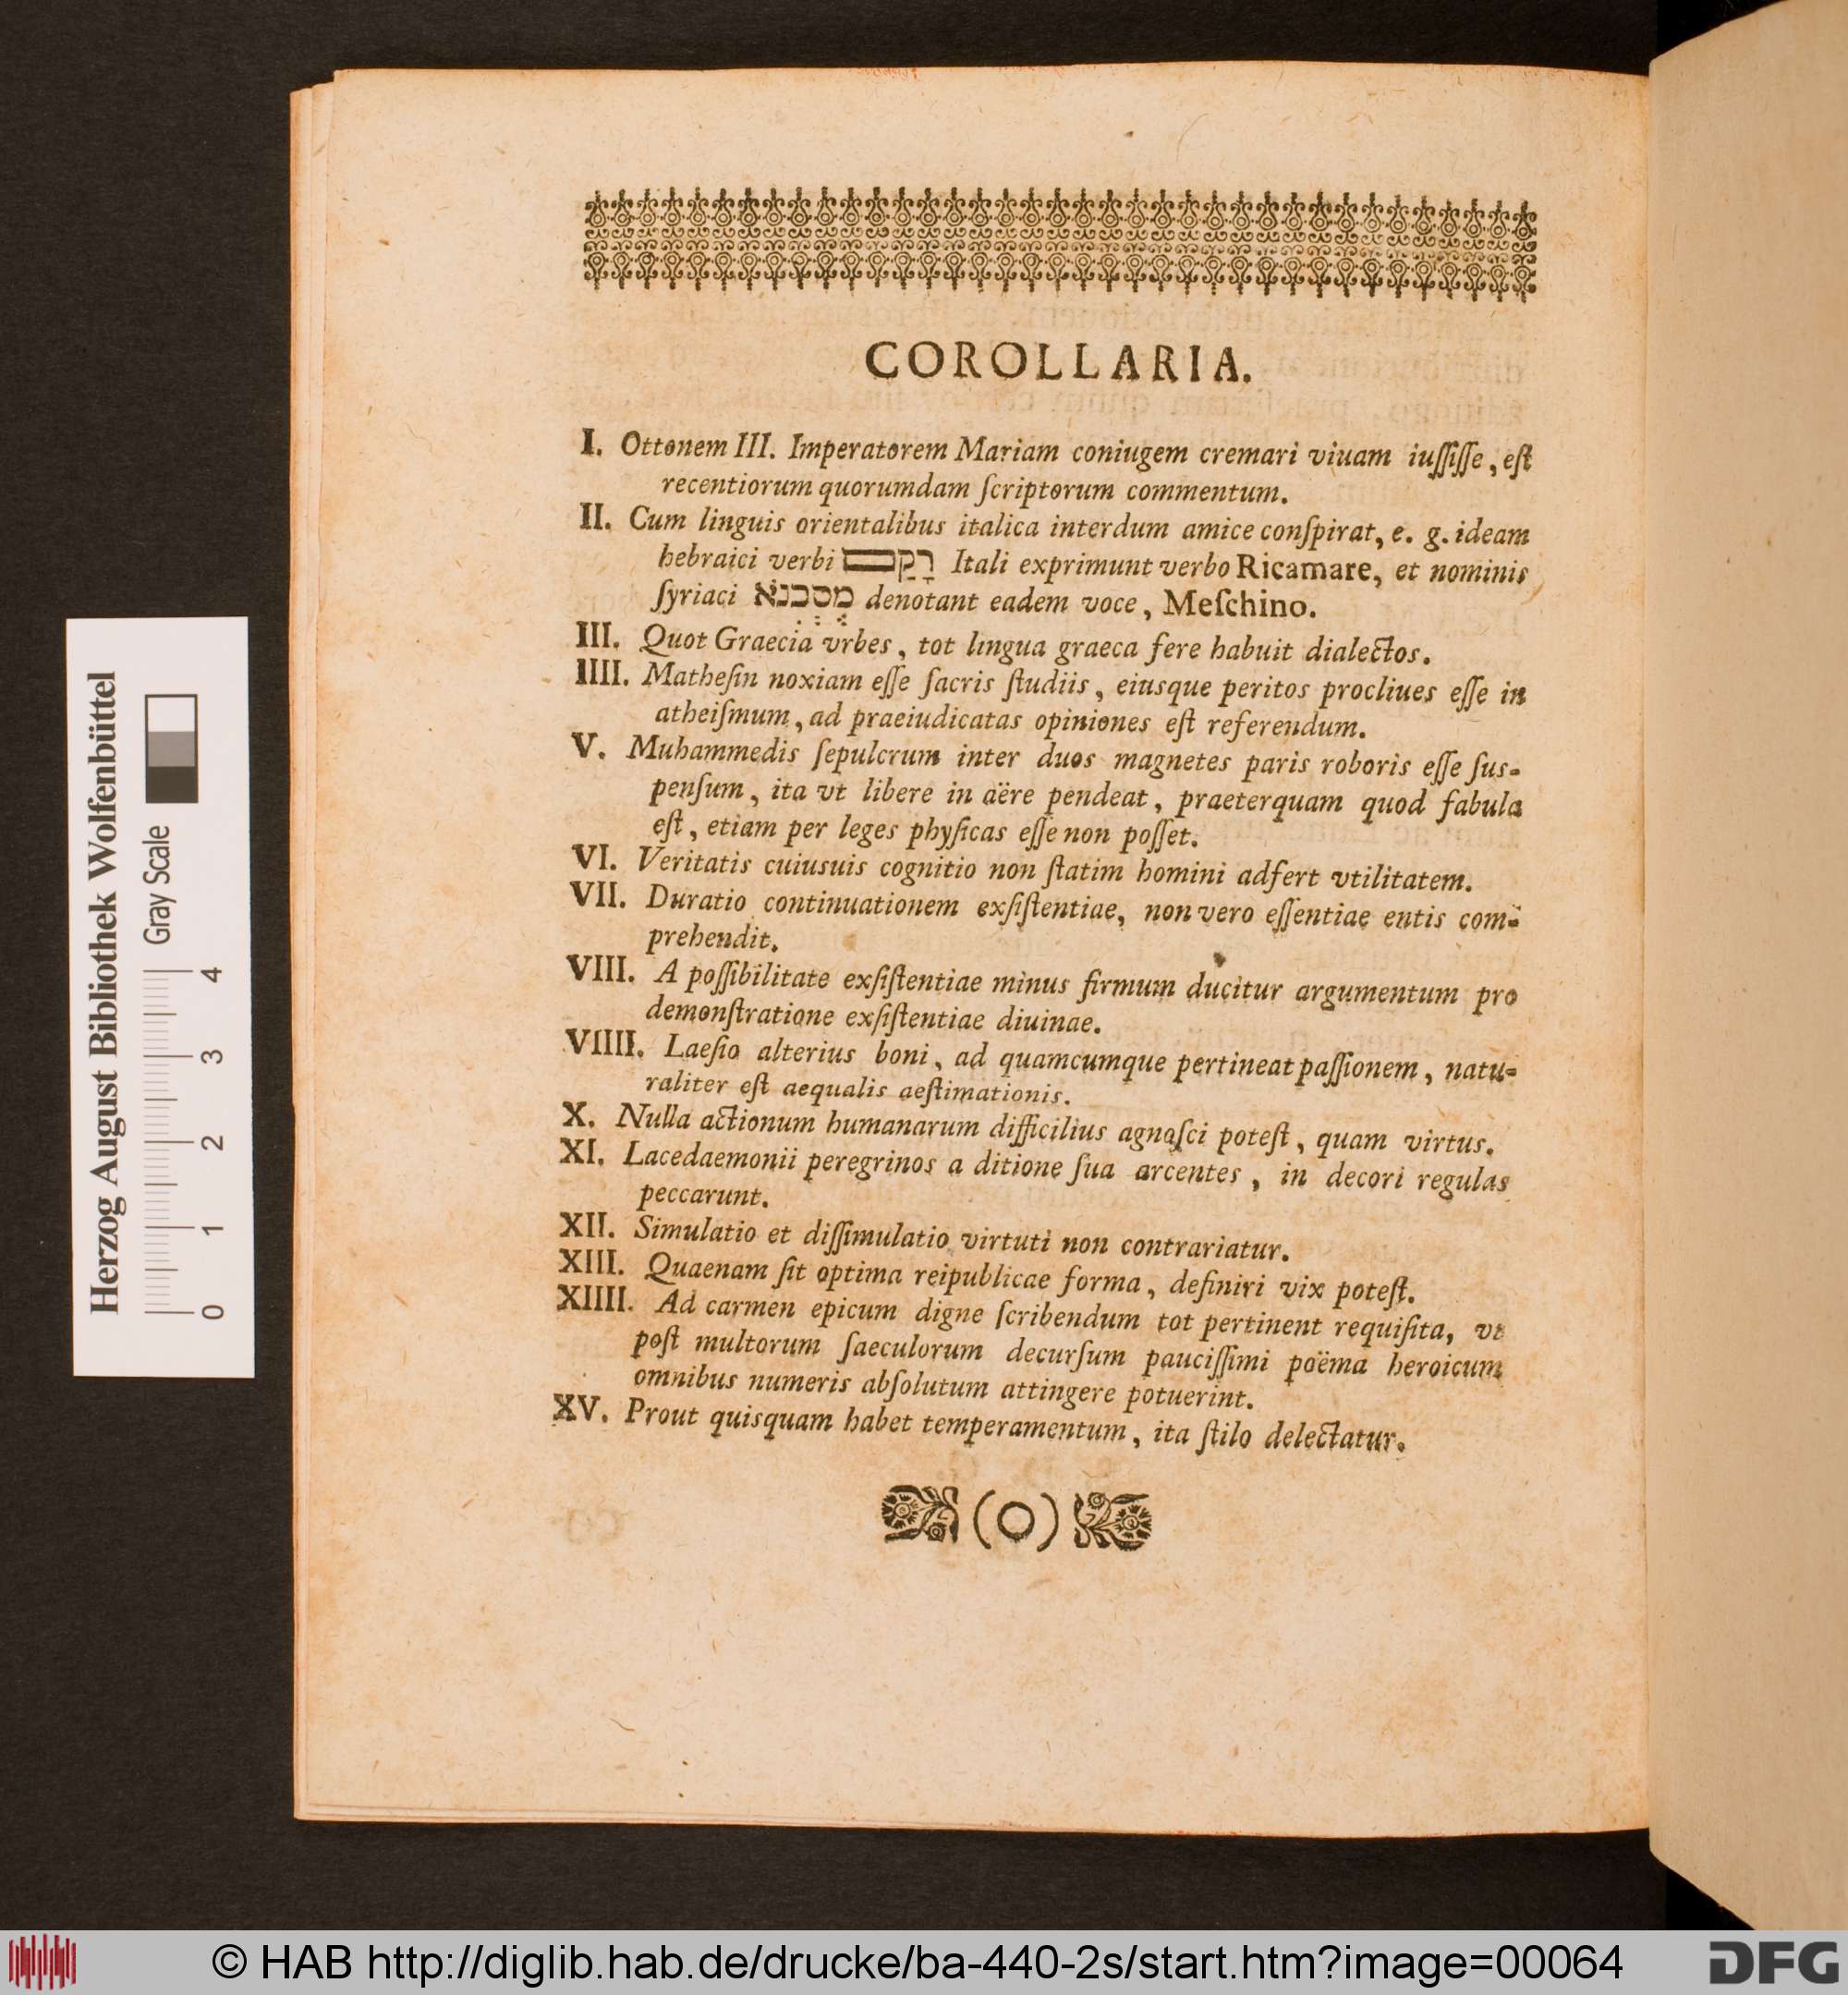 COROLLARIA.
I. Ottonem III. Imperatorem Mariam coniugem cremari viuam iuſſiſſe, eſt
recentiorum quorumdam ſcriptorum commentum.
II. Cum linguis orientalibus italica interdum amice conſpirat, e. g. ideam
hebraici verbi רָקַם Itali exprimunt verbo Ricamare, et nominis
ſyriaci מסכנא denotant eadem voce, Meſchino.
III. Quot Graecia vrbes, tot lingua graeca fere habuit dialectos.
IIII. Matheſin noxiam eſſe ſacris ſtudiis, eiusque peritos procliues eſſe in
atheiſmum, ad praeiudicatas opiniones eſt referendum.
V. Muhammedis ſepulcrum inter duos magnetes paris roboris eſſe ſus-
penſum, ita vt libere in aëre pendeat, praeterquam quod fabula
eſt, etiam per leges phyſicas eſſe non poſſet.
VI. Veritatis cuiusuis cognitio non ſtatim homini adfert vtilitatem.
VII. Duratio continuationem exſiſtentiae, non vero eſſentiae entis com-
prehendit.
VIII. A poſſibilitate exſiſtentiae minus firmum ducitur argumentum pro
demonſtratione exſiſtentiae diuinae.
VIIII. Laeſio alterius boni, ad quamcumque pertineat paſſionem, natu-
raliter eſt aequalis aeſtimationis.
X. Nulla actionum humanarum difficilius agnoſci poteſt, quam virtus.
XI. Lacedaemonii peregrinos a ditione ſua arcentes, in decori regulas
peccarunt.
XII. Simulatio et diſſimulatio virtuti non contrariatur.
XIII. Quaenam ſit optima reipublicae forma, definiri vix poteſt.
XIIII. Ad carmen epicum digne ſcribendum tot pertinent requiſita, vt
poſt multorum ſaeculorum decurſum pauciſſimi poëma heroicum
omnibus numeris abſolutum attingere potuerint.
XV. Prout quisquam habet temperamentum, ita ſtilo delectatur.
(O)
Herzog August Bibliothek Wolfenbüttel
Gray Scale
0 1 2 3 4
© HAB http://diglib.hab.de/drucke/ba-440-2s/start.htm?image=00064
DFG